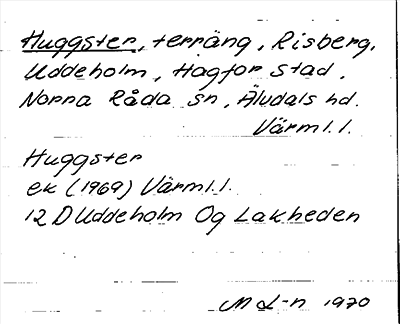 Huggster, terräng, Risberg,
Uddeholm, Hagfor stad,
Norra Råda sn, Äludals hd.
Värml. l.
Huggster
ek (1969) Värml. l.
12 D Uddeholm Og Lakheden
M L-n 1970